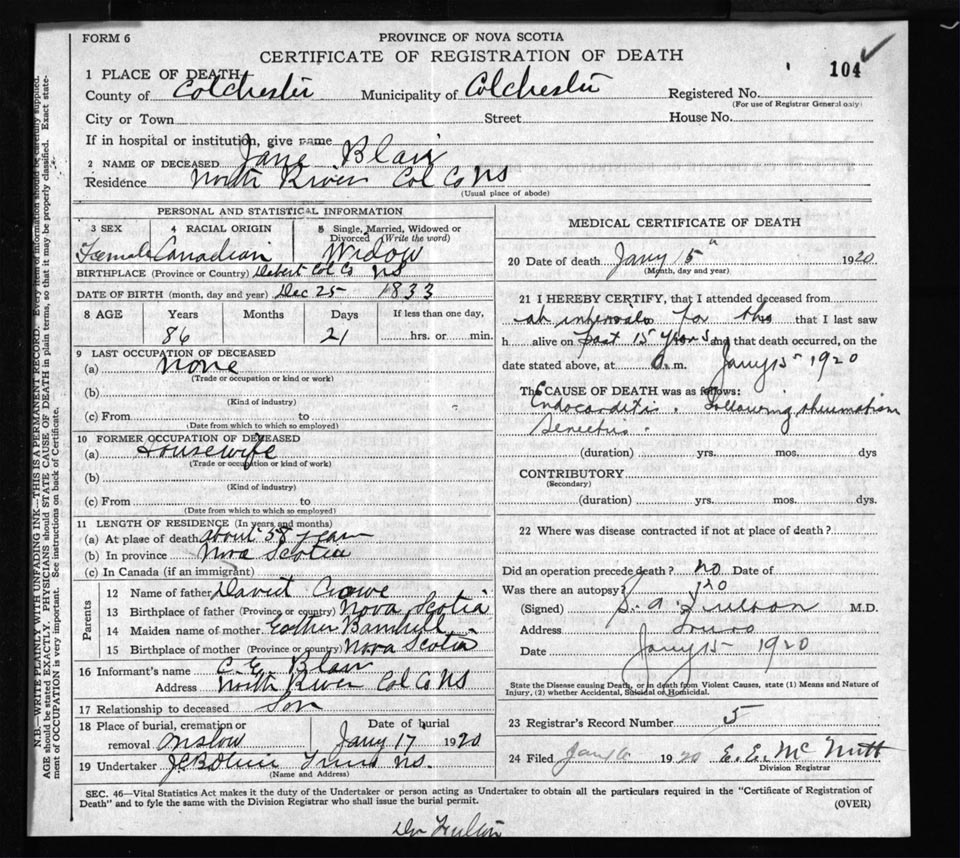 FORM 6
PROVINCE OF NOVA SCOTIA
CERTIFICATE OF REGISTRATION OF DEATH
104
1 PLACE OF DEATH
County of Colchester Municipality of Colchester Registered No.
(For use of Registrar General only)
City or Town Street House No.
If in hospital or institution, give name
2 NAME OF DECEASED Jane Blair
Residence North River Col Co NS
(Usual place of abode)
PERSONAL AND STATISTICAL INFORMATION
3 SEX 4 RACIAL ORIGIN 5 Single, Married, Widowed or Divorced (Write the word)
Female Canadian Widow
BIRTHPLACE (Province or Country) Debert Col Co NS
DATE OF BIRTH (month, day and year) Dec 25 1833
8 AGE Years Months Days If less than one day,
86 21 hrs. or min.
9 LAST OCCUPATION OF DECEASED
(a) None
(Trade or occupation or kind or work)
(b)
(Kind of industry)
(c) From to
(Date from which to which so employed)
10 FORMER OCCUPATION OF DECEASED
(a) Housewife
(Trade or occupation or kind of work)
(b)
(Kind of industry)
(c) From to
(Date from which to which so employed)
11 LENGTH OF RESIDENCE (In years and months)
(a) At place of death about 58 years
(b) In province Nova Scotia
(c) In Canada (if an immigrant)
Parents
12 Name of father David Crowe
13 Birthplace of father (Province or country) Nova Scotia
14 Maiden name of mother Esther Barnhill
15 Birthplace of mother (Province or country) Nova Scotia
16 Informant's name C. E. Blair
Address North River Col Co NS
17 Relationship to deceased Son
18 Place of burial, cremation or Date of burial
removal Onslow Jany 17 1920
19 Undertaker Truro NS.
(Name and Address)
MEDICAL CERTIFICATE OF DEATH
20 Date of death Jany 15" 1920
(Month, day and year)
21 I HEREBY CERTIFY, that I attended deceased from
at intervals for the that I last saw
h alive on past 15 years and that death occurred, on
date stated above, at a. m. Jany 15 1920
The CAUSE OF DEATH was as follows:
Endocarditis. Following rheumatism
(duration) yrs. mos. dys
CONTRIBUTORY
(Secondary)
(duration) yrs. mos. dys.
22 Where was disease contracted if not at place of death?
Did an operation precede death? no Date of
Was there an autopsy? no
(Signed) M.D.
Address Truro
Date Jany 15 1920
State the Disease causing Death, or in death from Violent Causes, state (1) Means and Nature of
Injury, (2) whether Accidental, Suicidal or Homicidal.
23 Registrar's Record Number 5
24 Filed 1920 E. E. McNutt
Division Registrar
SEC. 46—Vital Statistics Act makes it the duty of the Undertaker or person acting as Undertaker to obtain all the particulars required in the "Certificate of Registration of
Death" and to fyle the same with the Division Registrar who shall issue the burial permit.
(OVER)
N.B.—WRITE PLAINLY WITH UNFADING INK—THIS IS A PERMANENT RECORD. Every item of information should be carefully supplied.
AGE should be stated EXACTLY. PHYSICIANS should STATE CAUSE OF DEATH in plain terms, so that it may be properly classified. Exact state-
ment of OCCUPATION is very important. See instructions on back of Certificate.